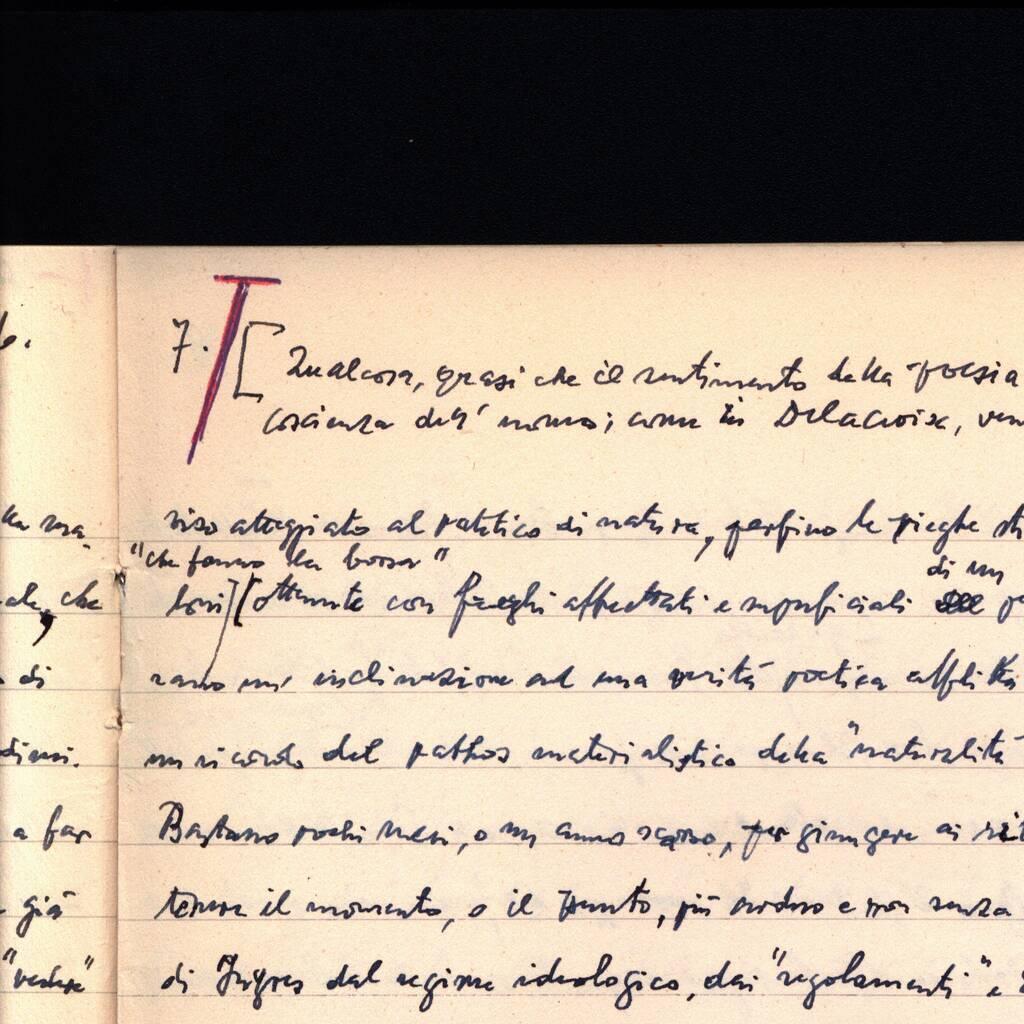 6.
7. [ Qualcosa, quasi che il sentimento della poesia
coscienza dell' uomo; come in Delacroix, ven
viso atteggiato al patetico di natura, perfino le pieghe
"che fanno la borsa"
di un
][ ottenute con freghi affrettati e superficiali
un' inclinazione ad una verità poetica
un ricordo del pathos materialistico della "naturalità
Bastano pochi mesi, o un anno scarso, per giungere ai
tenere il momento, o il punto, più arduo e non senza
di Ingres dal regime ideologico, dai "regolamenti" e
che
di
a far
già
"vedere"